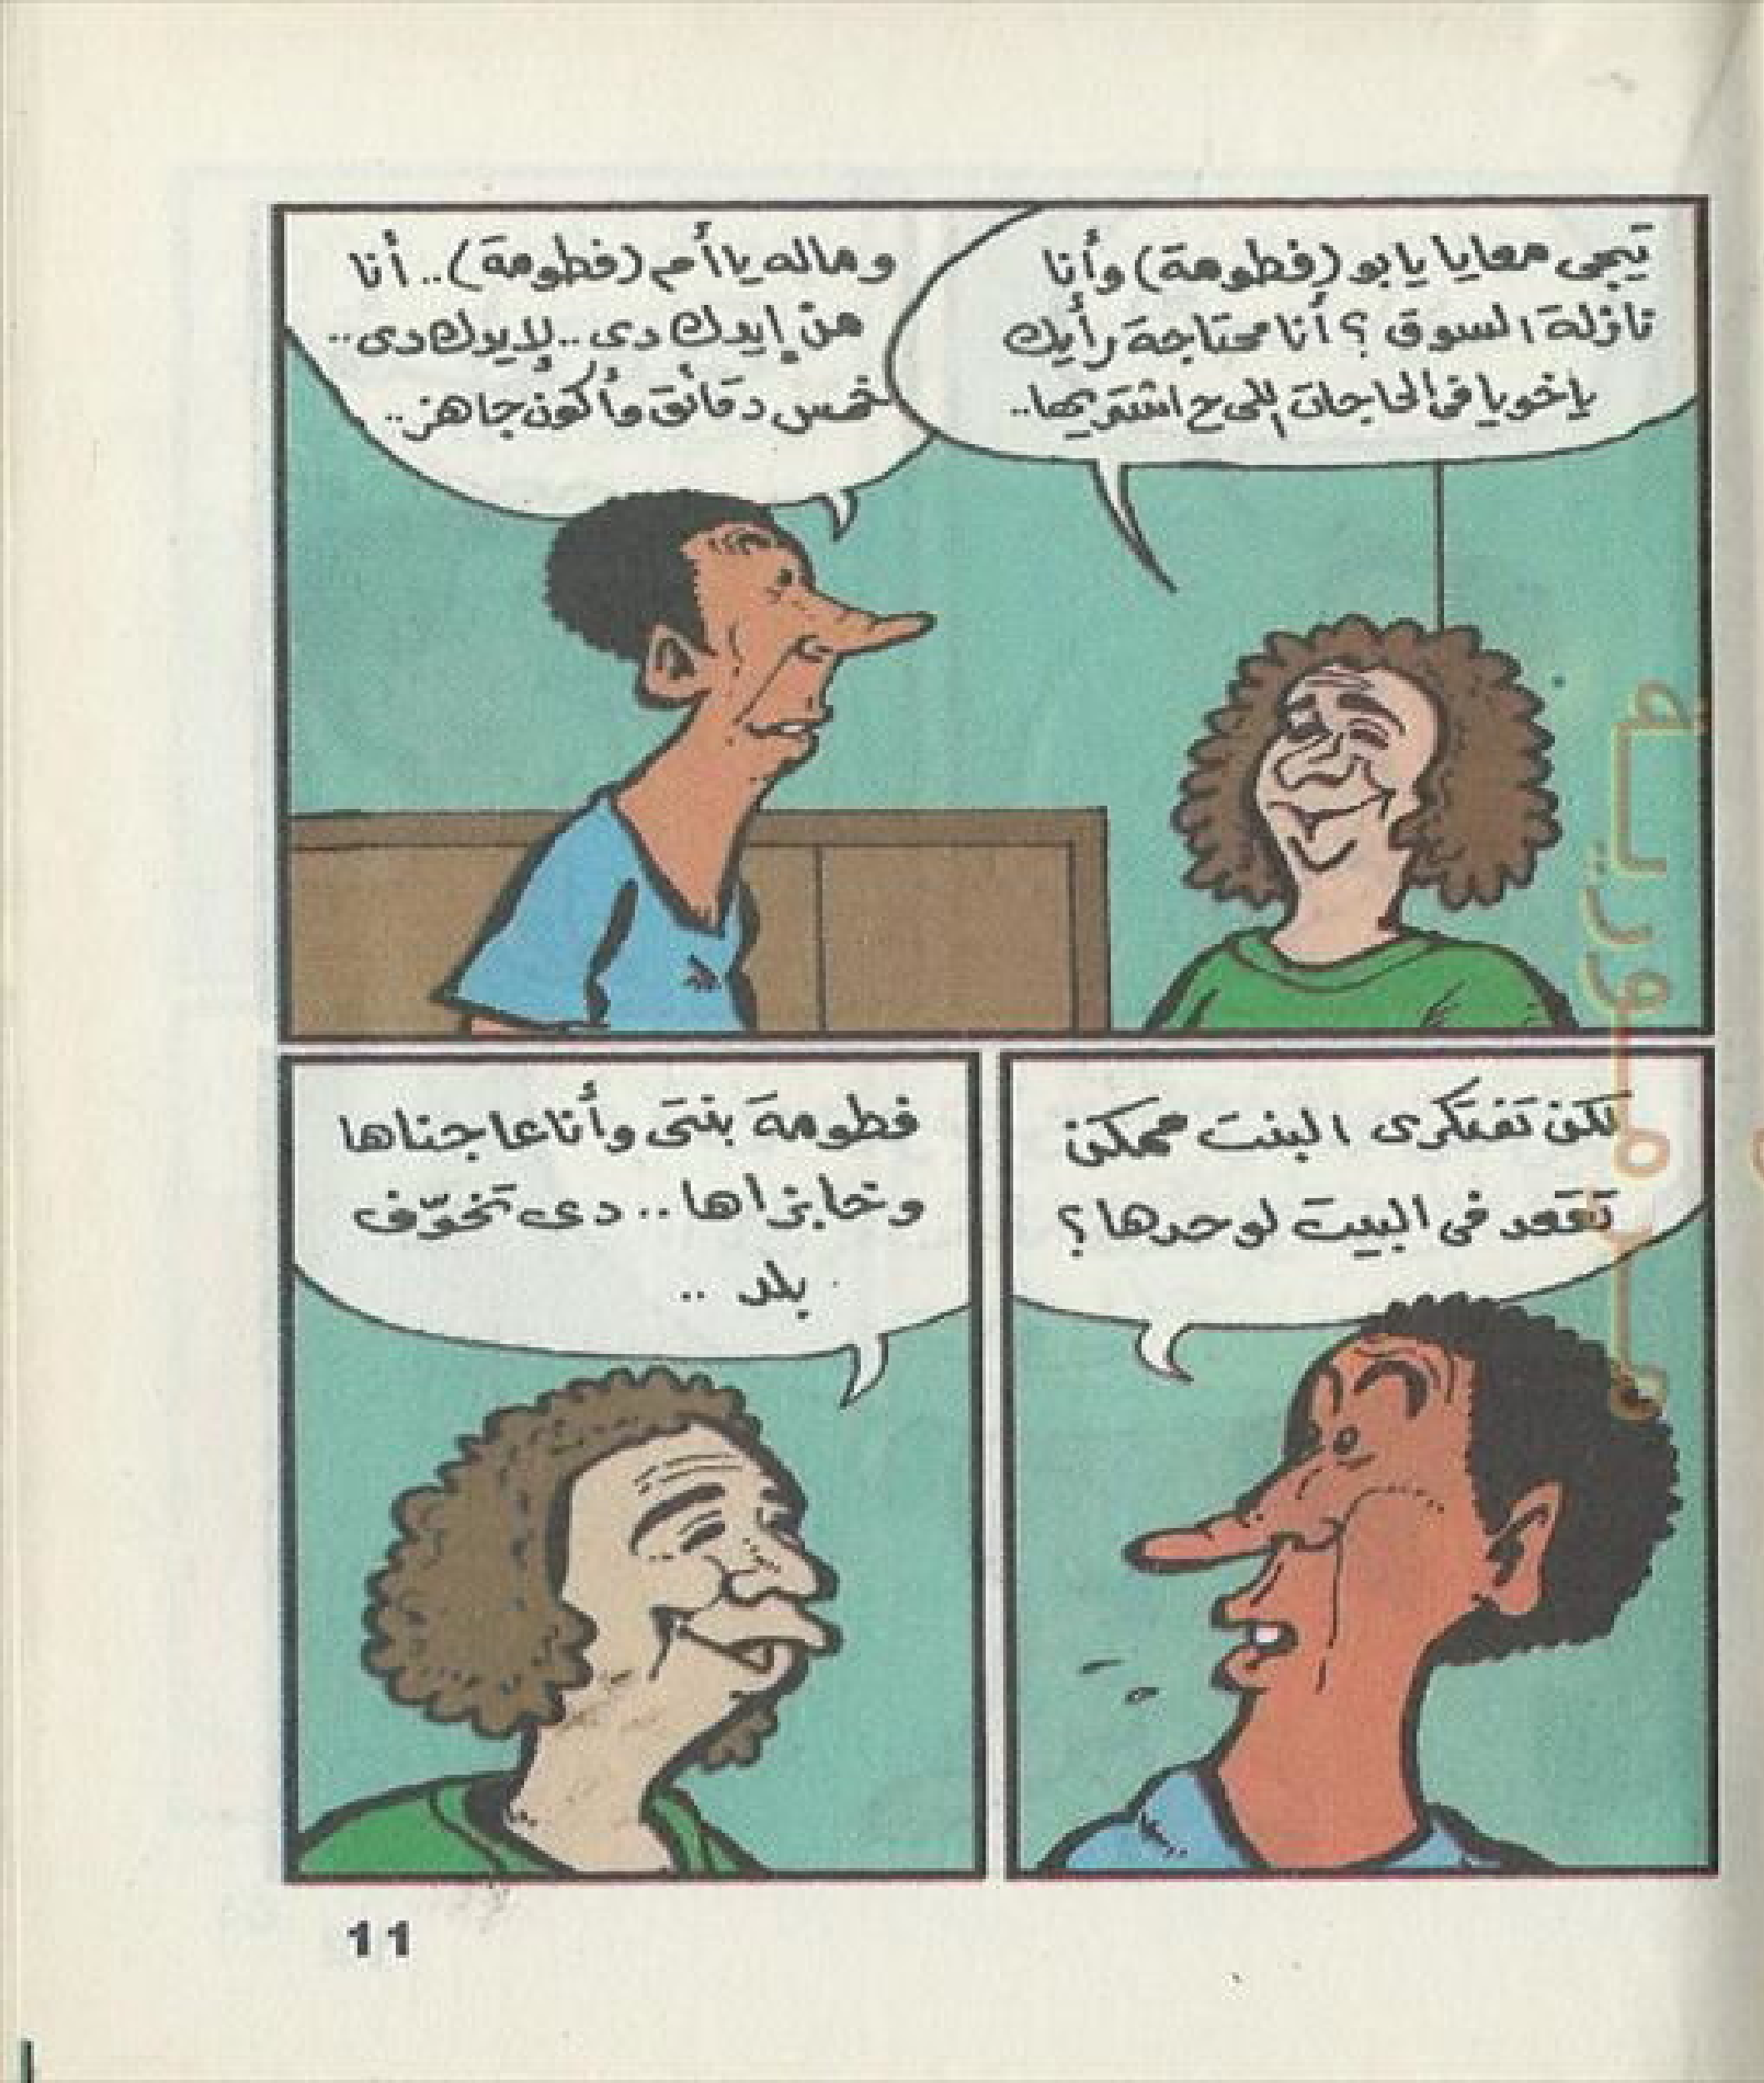 تيجى معايا يا بو (فطومة) وأنا
نازلة السوق ؟ أنا محتاجة رأيك
يا خويا فى الحاجات اللى ح اشتريها..
وماله يا أم (فطومة).. أنا
من إيدك دى.. لإيدك دى..
خمس دقائق وأكون جاهز..
لكن تفتكرى البنت ممكن
تقعد فى البيت لوحدها ؟
فطومة بنتى وأنا عاجناها
وخابزاها.. دى تخوّف
بلد ..
11